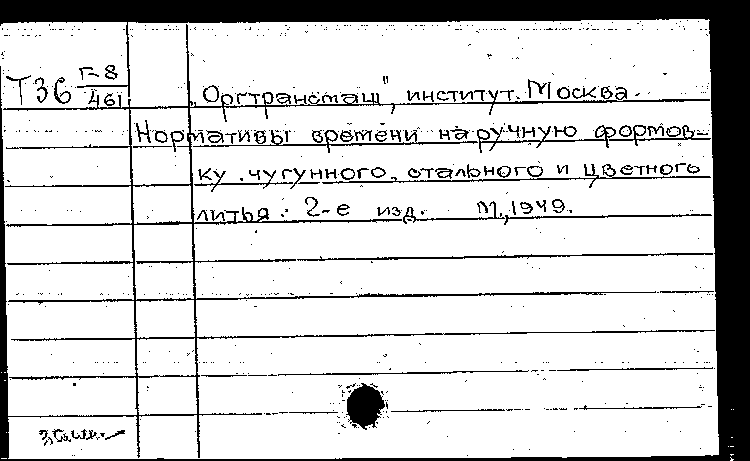 Т36 Г-8/461
„Оргтрансмаш", институт. Москва.
Нормативы времени на ручную формов-
ку чугунного, стального и цветного
литья. 2-е изд. М., 1949.